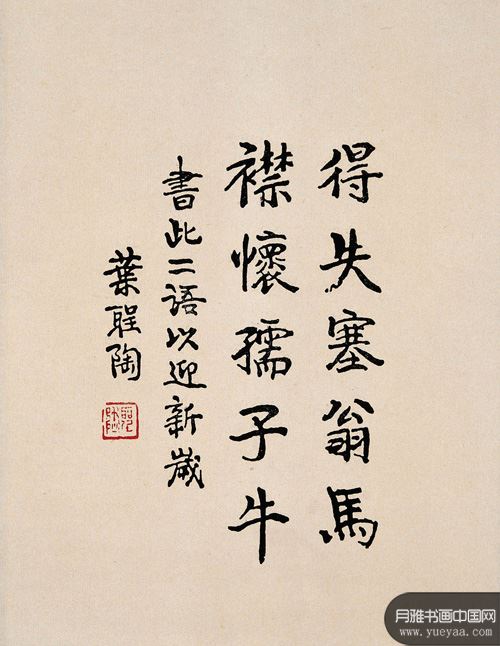 得失塞翁馬
襟懷孺子牛
書此二语以迎新歲
葉聖陶
月雅书画中国网
www.yueyaa.com